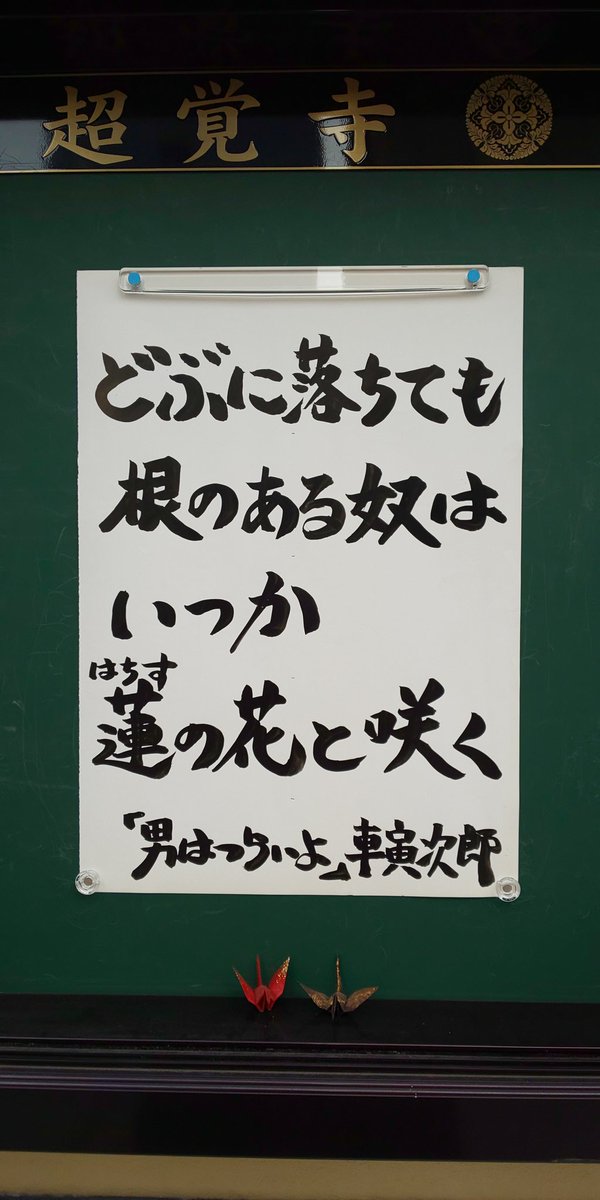 超覚寺
どぶに落ちても
根のある奴は
いつか
はちす
蓮の花と咲く
「男はつらいよ」車寅次郎